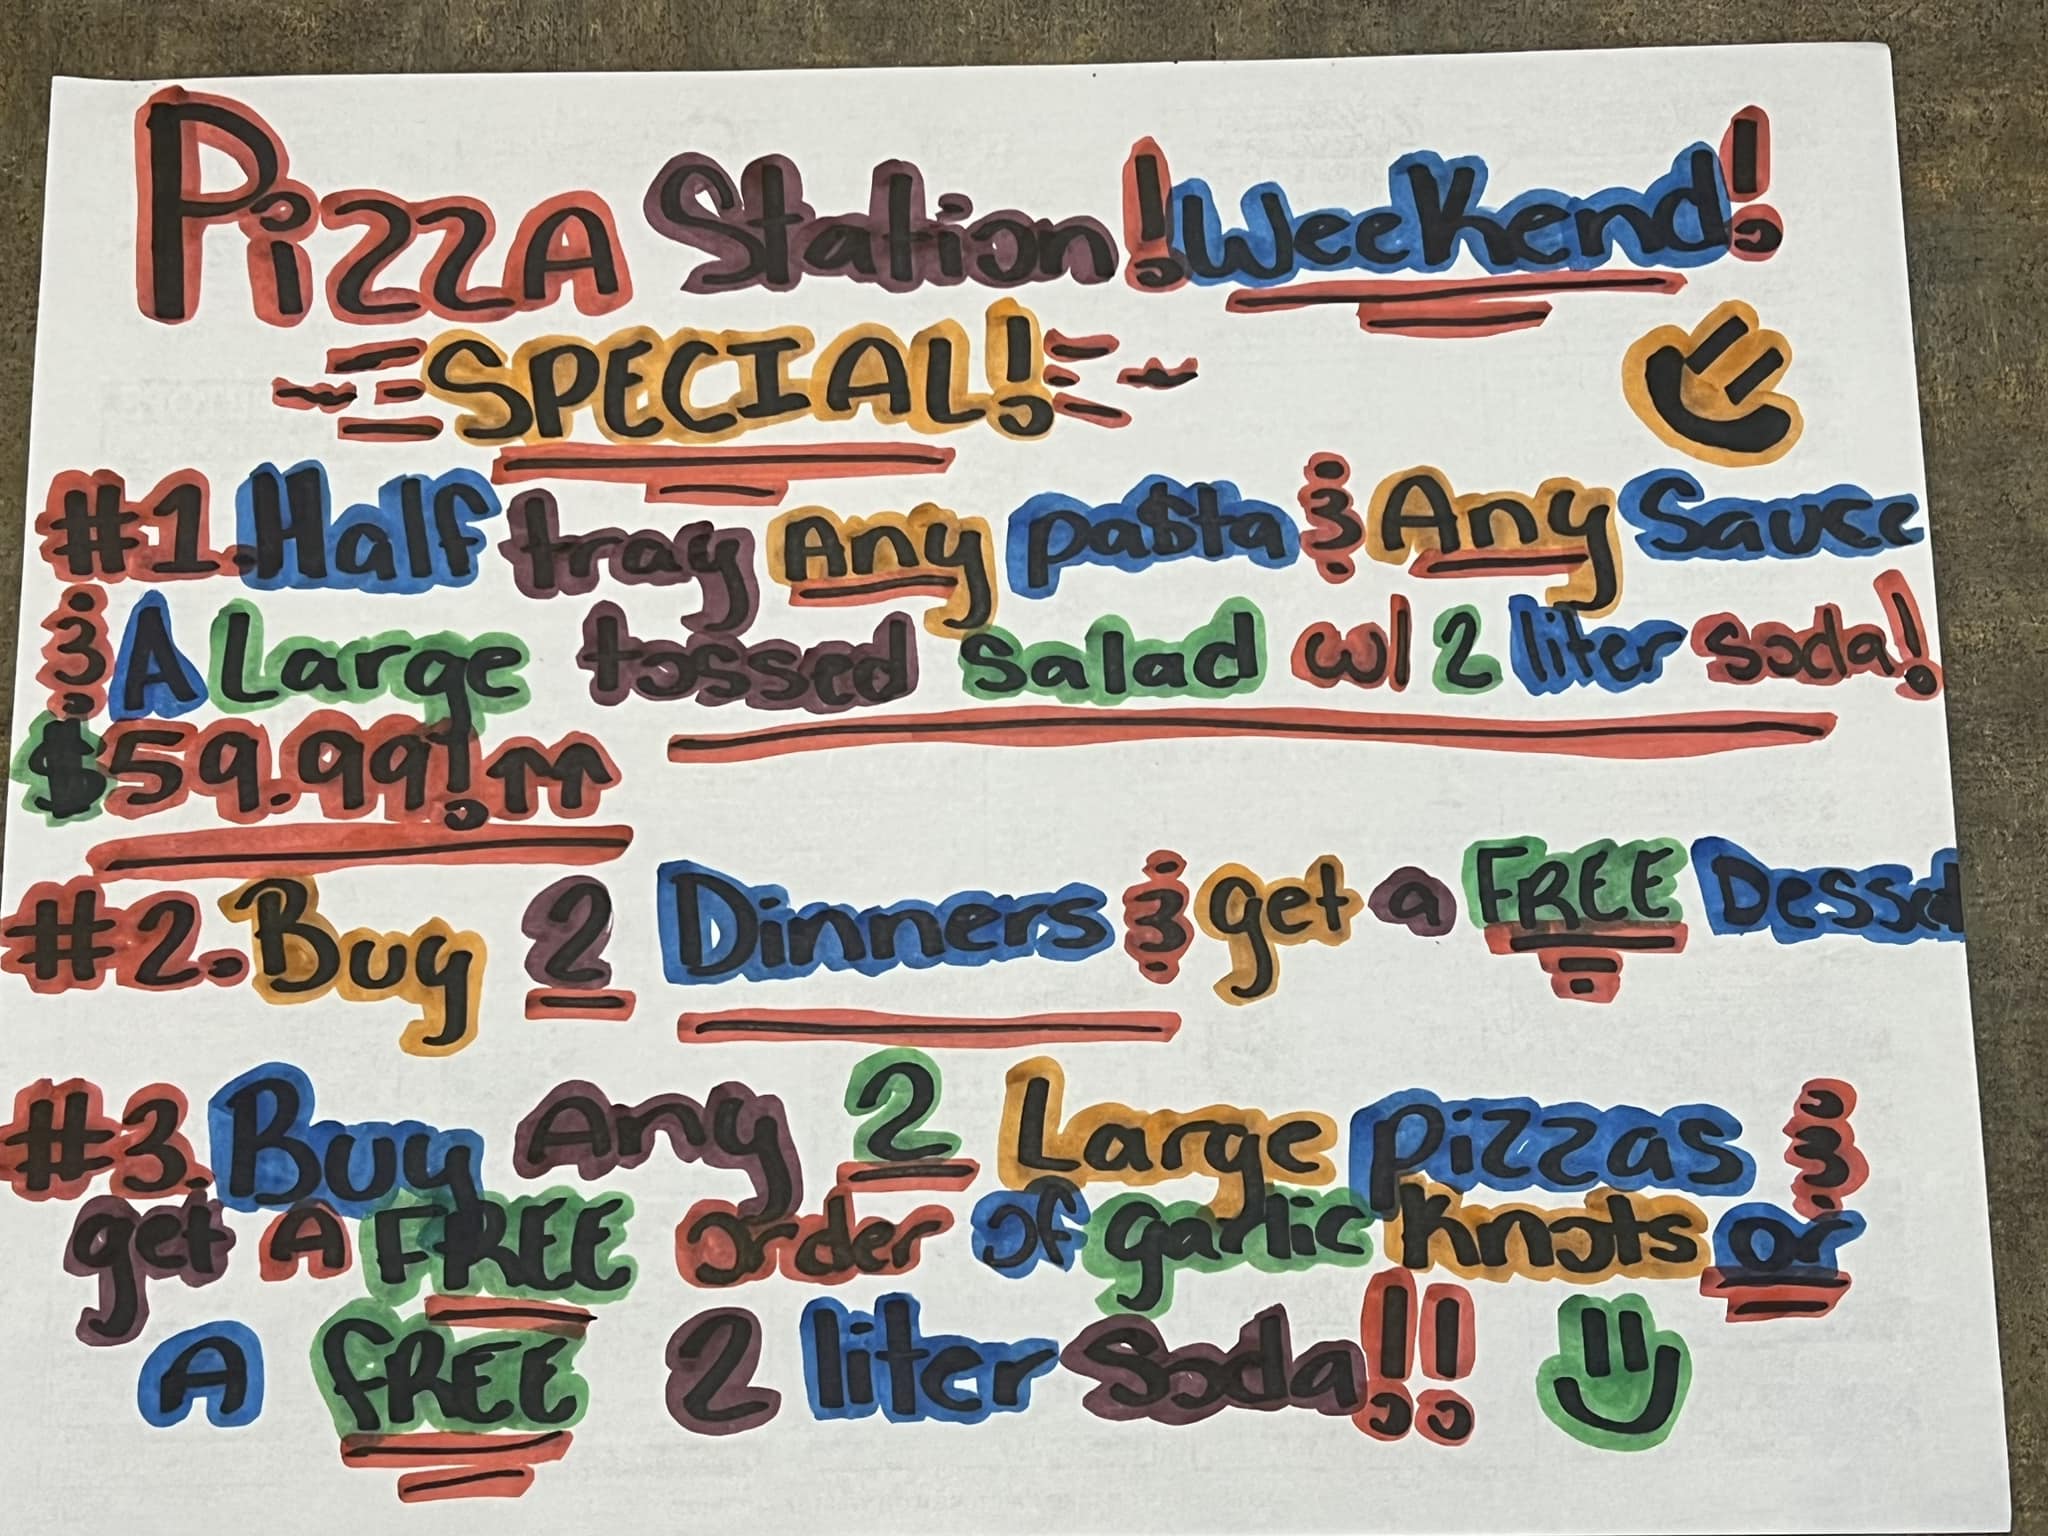 Pizza Station !Weekend!
SPECIAL!
#1. Half tray Any pasta & Any Sauce
& A Large tossed salad w/ 2 liter soda!
$59.99!
#2. Buy 2 Dinners & get a FREE
#3. Buy Any 2 Large pizzas &
get A FREE order of garlic Knots or
A FREE 2 liter Soda!!